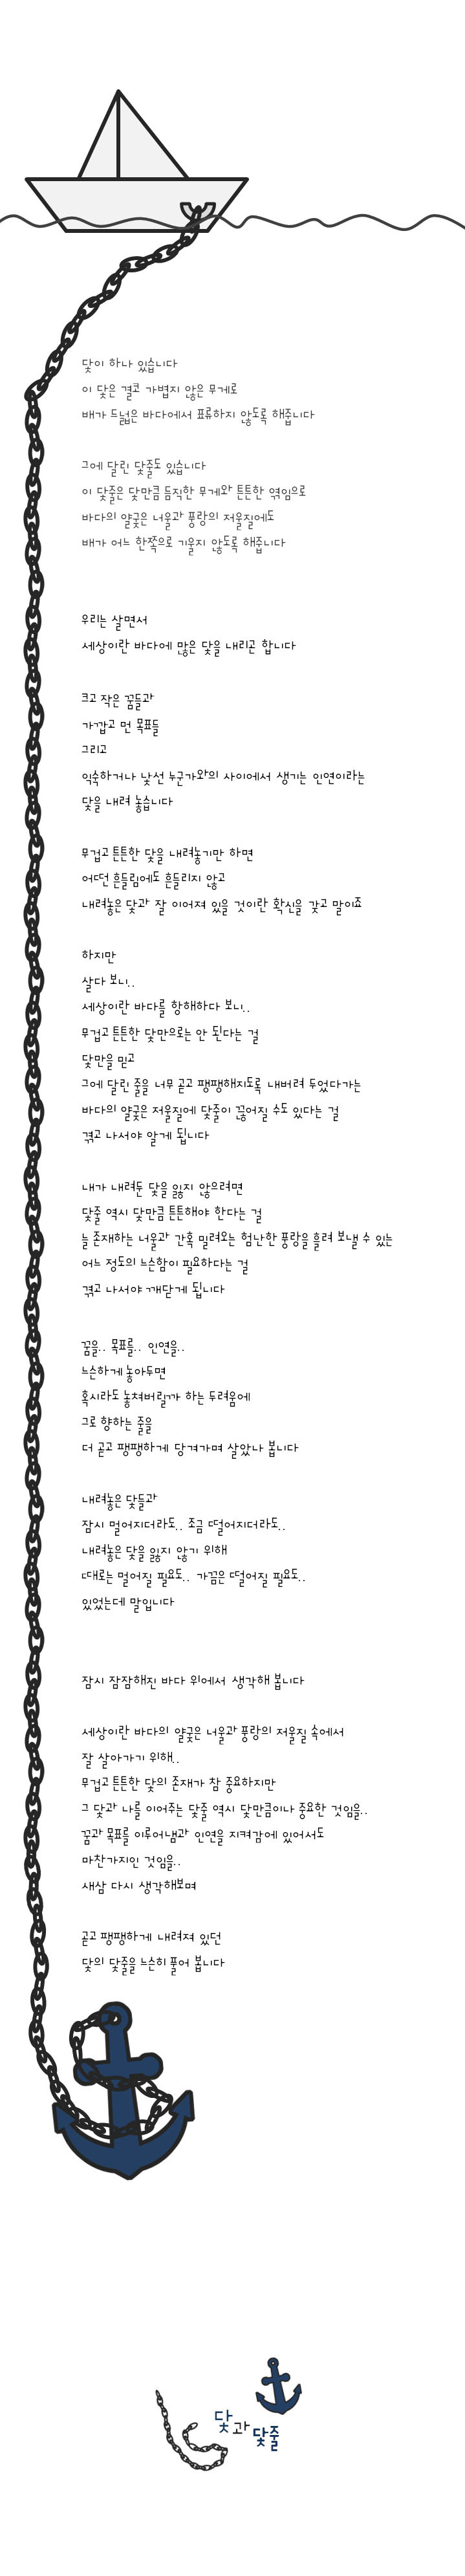 닻이 하나 있습니다
이 닻은 결코 가볍지 않은 무게로
배가 드넓은 바다에서 표류하지 않도록 해줍니다
그에 달린 닻줄도 있습니다
이 닻줄은 닻만큼 듬직한 무게와 튼튼한 엮임으로
바다의 얄궂은 너울과 풍랑의 저울질에도
배가 어느 한쪽으로 기울지 않도록 해줍니다
우리는 살면서
세상이란 바다에 많은 닻을 내리곤 합니다
크고 작은 꿈들과
가깝고 먼 목표들
그리고
익숙하거나 낯선 누군가와의 사이에서 생기는 인연이라는
닻을 내려 놓습니다
무겁고 튼튼한 닻을 내려놓기만 하면
어떤 흔들림에도 흔들리지 않고
내려놓은 닻과 잘 이어져 있을 것이란 확신을 갖고 말이죠
하지만
살다 보니..
세상이란 바다를 항해하다 보니..
무겁고 튼튼한 닻만으로는 안 된다는 걸
닻만을 믿고
그에 달린 줄을 너무 곧고 팽팽해지도록 내버려 두었다가는
바다의 얄궂은 저울질에 닻줄이 끊어질 수도 있다는 걸
겪고 나서야 알게 됩니다
내가 내려둔 닻을 잃지 않으려면
닻줄 역시 닻만큼 튼튼해야 한다는 걸
늘 존재하는 너울과 간혹 밀려오는 험난한 풍랑을 흘려 보낼 수 있는
어느 정도의 느슨함이 필요하다는 걸
겪고 나서야 깨닫게 됩니다
꿈을.. 목표를.. 인연을..
느슨하게 놓아두면
혹시라도 놓쳐버릴까 하는 두려움에
그로 향하는 줄을
더 곧고 팽팽하게 당겨가며 살았나 봅니다
내려놓은 닻들과
잠시 멀어지더라도.. 조금 떨어지더라도..
내려놓은 닻을 잃지 않기 위해
때로는 멀어질 필요도.. 가끔은 떨어질 필요도..
있었는데 말입니다
잠시 잠잠해진 바다 위에서 생각해 봅니다
세상이란 바다의 얄궂은 너울과 풍랑의 저울질 속에서
잘 살아가기 위해..
무겁고 튼튼한 닻의 존재가 참 중요하지만
그 닻과 나를 이어주는 닻줄 역시 닻만큼이나 중요한 것임을..
꿈과 목표를 이루어냄과 인연을 지켜감에 있어서도
마찬가지인 것임을..
새삼 다시 생각해보며
곧고 팽팽하게 내려져 있던
닻의 닻줄을 느슨히 풀어 봅니다
닻과 닻줄